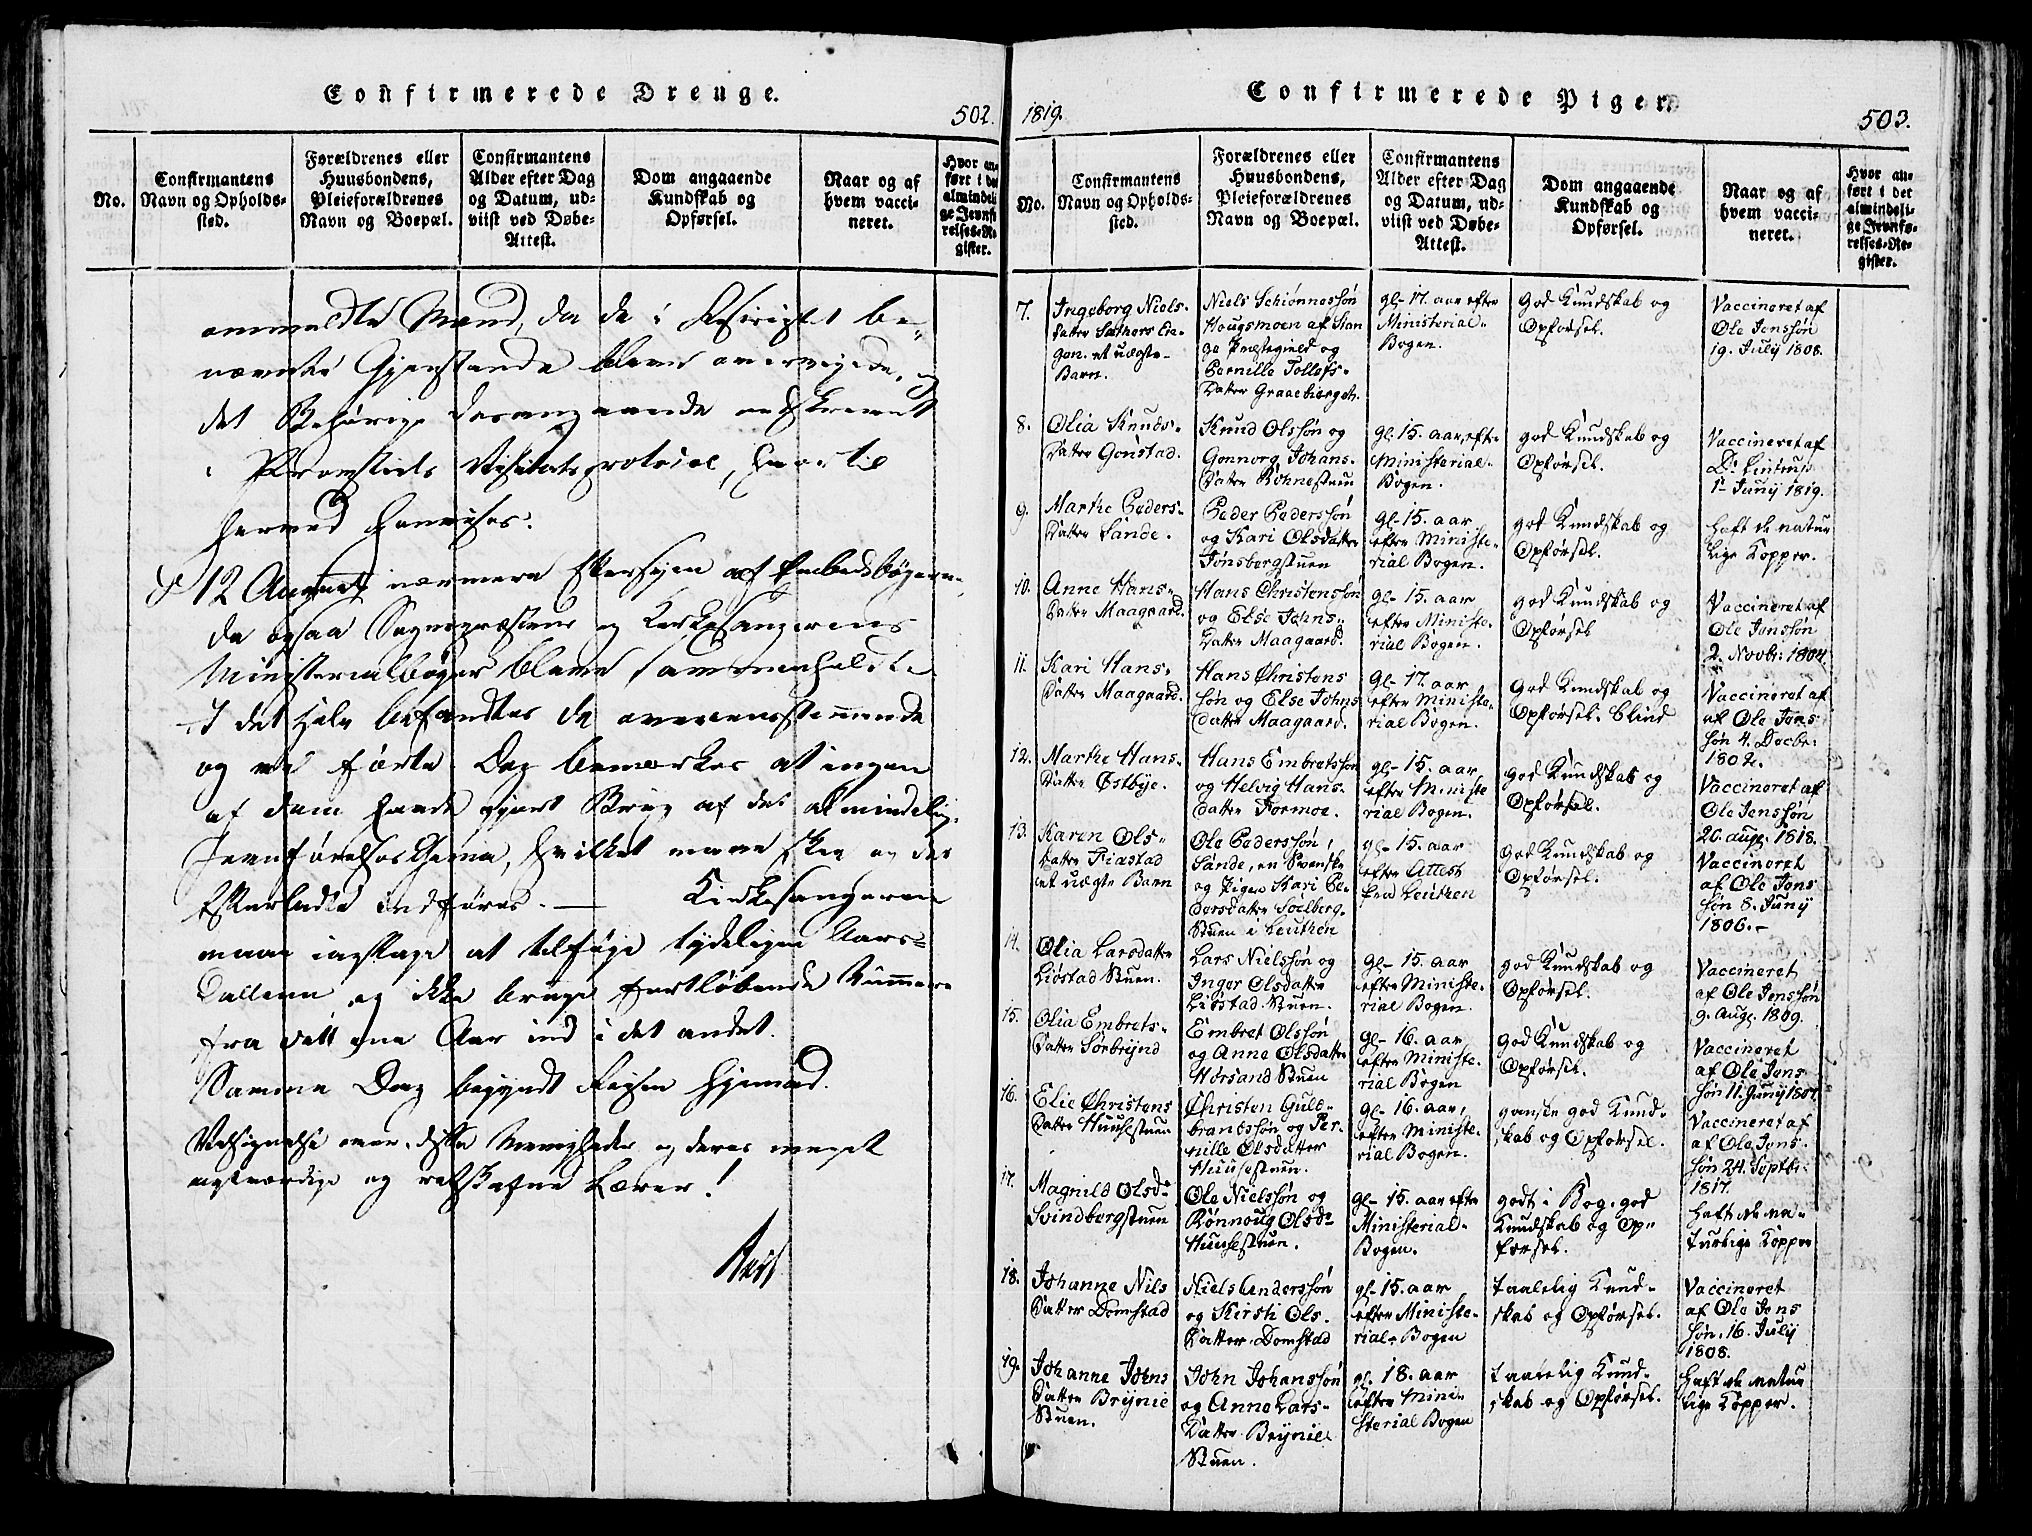 Confirmerede Drenge.
502.
No.
Confirmantens
Navn og Opholds-
sted.
Forældrenes eller
Huusbondens,
Pleieforældrenes
Navn og Boepæl.
Confirmantens
Alder efter Dag
og Datum, ud-
viist ved Døbe-
Attest.
Dom angaaende
Kundskab og
Opførsel.
Naar og af
hvem vacci-
neret.
Hvor an-
ført i det
almindeli-
ge Jevnfø-
relses-Re-
gister.
anmeldte Mænd, da de i be-
nævnte Gjenstande bleve overveyede, og
det Behørige desangaaende
i Provstiets Visitatsprotocol, hvortil
herved henvises.
d 12 August nærmere Eftersyn af Embedsbøgerne,
da ogsaa Sognepræstens og Kirkesangerens
Ministerialbøger bleve sammenholdte
I det Hele befandtes de overeensstemmende
og vel førte. Dog bemærkes at ingen
af dem havde gjort Brug af det almindelig.
Jevnførelses Schema, hvilket maae skee og det
Efterladte indføres. — Kirkesangeren
maae iagttage at tilføje tydeligen Aars-
Tallene og ikke bruge fortløbende Numere
fra dett ene Aar ind i det andet.
Samme Dag begyndt Reysen hjemad.
Velsignelse over disse Menigheder og deres meget
agtværdige og retskafne Lærer!
1819.
Confirmerede Piger.
503.
No.
Confirmantens
Navn og Opholds-
sted.
Forældrenes eller
Huusbondens,
Pleieforældrenes
Navn og Boepæl.
Confirmantens
Alder efter Dag
og Datum, ud-
viist ved Døbe-
Attest.
Dom angaaende
Kundskab og
Opførsel.
Naar og af
hvem vacci-
neret.
Hvor an-
ført i det
almindeli-
ge Jevnfø-
relses-Re-
gister.
7.
Ingeborg Niels-
Datter Sæthers En-
gen. et uægte-
Barn.
Niels Schiønnessøn
Hougsmoen af Stan
ge Præstegield og
Pernille Tollefs-
Datter Graaebierget.
gl- 17. aar efter
Ministerial-
Bogen.
God Kundskab og
Opførsel.
Vaccineret af
Ole Jenssøn
19. July 1808.
8.
Olia Knuds-
Datter Gonstad.
Knud Olssøn og
Gonnorg Johans-
Datter Kohnestuen
gl. 15. aar, efter
Ministerial-
Bogen.
god Kundskab og
Opførsel.
Vaccineret af
Dr Lintrup
1- Juny 1819.
9.
Marthe Peders-
Datter Sande.
Peder Pederssøn
og Kari Olsdatter
Jønsbergstuen
gl- 15. aar
efter Ministe-
rial Bogen.
god Kundskab og
Opførsel.
haft de natur
lige Kopper.
10.
Anne Hans-
Datter Maagaard.
Hans Christenssøn
og Else Johns-
Datter Maagaard.
gl- 15. aar
efter Ministe-
rial Bogen.
god Kundskab og
Opførsel
Vaccineret af
Ole Jenssøn
2. Novbr: 1804.
11.
Kari Hans-
Datter Maagaard.
Hans Christens
søn og Else Johns
Datter Maagaard.
gl- 17. aar
efter Ministe-
rial Bogen.
God Kundskab og
Opførsel. blind
Vaccineret af
af Ole Jens-
søn 4. Decbr.
1802.
12.
Marthe Hans-
Datter Østbye.
Hans Embretssøn
og Helvig Hans-
datter Formoe.
gl- 15. aar
efter Ministe
rial Bogen.
god Kundskab og
Opførsel.
Vaccineret af
Ole Jenssøn
20. augl. 1818.
13.
Karen Ols-
Datter Fiastad
et uægte Barn
Ole Pederssøn,
Sande, en Svenske
og Pigen Kari Pe-
dersdatter Soelberg-
Stuen i Leuthen
gl- 15. aar
efter Attest
fra Leuthen
god Kundskab og
Opførsel.
Vaccineret
af Ole Jens
søn 8. Juny
1806.-
14.
Olia Larsdatter
Liøstad Stuen.
Lars Nielssøn og
Inger Olsdatter
Liøstad-Stuen.
gl- 15. aar
efter Ministe-
rial Bogen.
god Kundskab og
Opførsel.
Vaccineret
af Ole Jenssøn
9. augl. 1809.
15.
Olia Embrets-
Datter Sørbrynd
Embret Olssøn
og Anne Olsdatter
Horsand Stuen
gl- 16. aar
efter Ministe-
rial Bogen
God Kundskab og
Opførsel.
Vaccineret
af Ole Jens
søn 11. Juny 1807.
16.
Elie Christens
Datter Huusestuen
Christen Guld-
brandssøn og Per-
nille Olsdatter
Huusestuen.
gl- 16. aar,
efter Ministe-
rial Bogen.
ganske god Kund-
skab og Opførsel.
Vaccineret af
af Ole Jens-
søn 24. Septbr:
1817.
17.
Magnild Olsd-
Svindbergstuen
Ole Nielssøn og
Rønnoug Olsd-
Huusestuen.
gl- 15. aar efter
Ministerial-
Bogen.
godt i Bog. god
Kundskab og Op-
førsel.
haft de na-
turlige Kopper
18.
Johanne Nils
Datter Domstad
Niels Anderssøn
og Kirsti Ols-
Datter Domstad
gl- 15. aar
efter Ministe-
rial-Bogen
taalelig Kund-
skab og Opførsel.
Vaccineret
af Ole Jens
søn. 16. July
1808.
19.
Johanne Johns
Datter Brynie
Stuen.
John Johanssøn
og Anne Lars-
Datter Brynie
Stuen.
gl. 18. aar
efter Mini-
sterial Bogen
taarelig Kund-
skab og Opførsel.
haft de natur
lige Kopper.